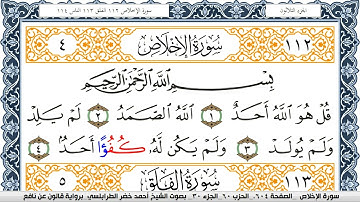 الجزء الثلاثون
سورة الإخلاص ١١٢ الفلق ١١٣ الناس ١١٤
١١٢ سُورَةُ الإِخْلَاصِ ٤
بِسْمِ اللَّهِ الرَّحْمَٰنِ الرَّحِيمِ
قُلْ هُوَ اللَّهُ أَحَدٌ ١ اللَّهُ الصَّمَدُ ٢ لَمْ يَلِدْ
وَلَمْ يُولَدْ ٣ وَلَمْ يَكُن لَّهُ كُفُؤًا أَحَدٌ ٤
١١٣ سُورَةُ الْفَلَقِ ٥
سورة الإخلاص الصفحة ٦٠٤ الحزب ٦٠ الجزء ٣٠ بصوت الشيخ أحمد خضر الطرابلسي برواية قالون عن نافع